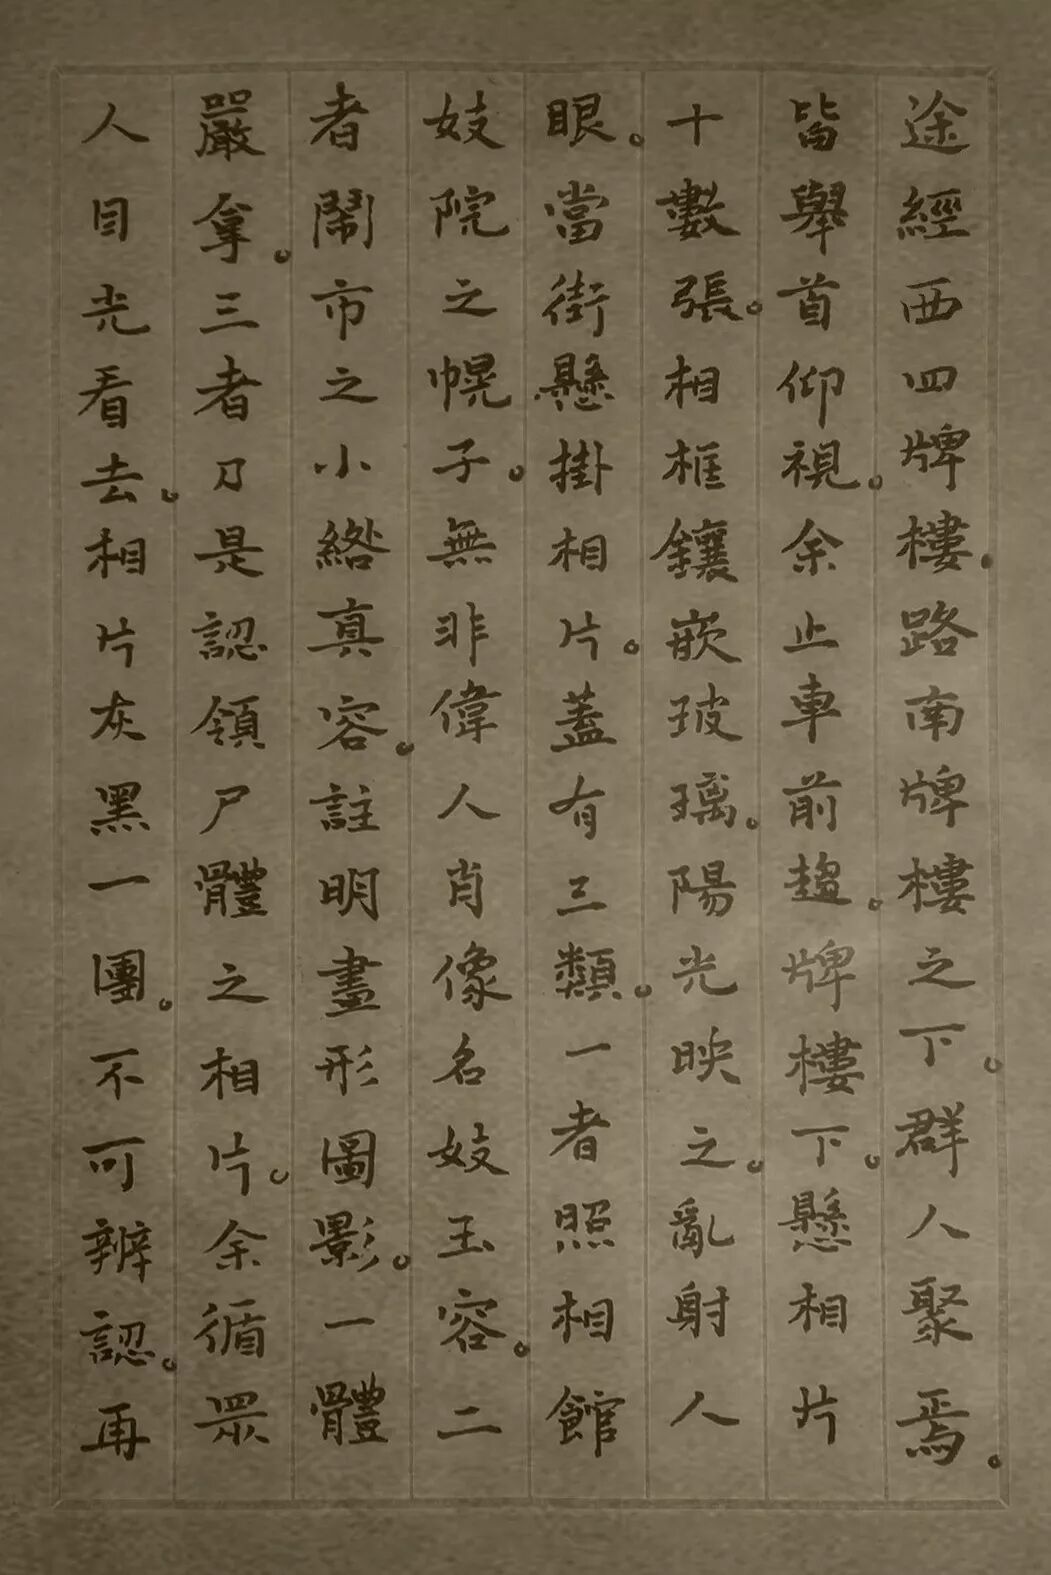 途經西四牌樓.路南牌樓之下。群人聚焉。
皆舉首仰視。余止車前趨。牌樓下。懸相片
十數張。相框鑲嵌玻璃。陽光映之。亂射人
眼。當街懸掛相片。蓋有三類。一者照相館
妓院之幌子。無非偉人肖像名妓玉容。二
者鬧市之小綹真容。註明畫形圖影。一體
嚴拿。三者乃是認領尸體之相片。余循眾
人目光看去。相片灰黑一團。不可辨認。再